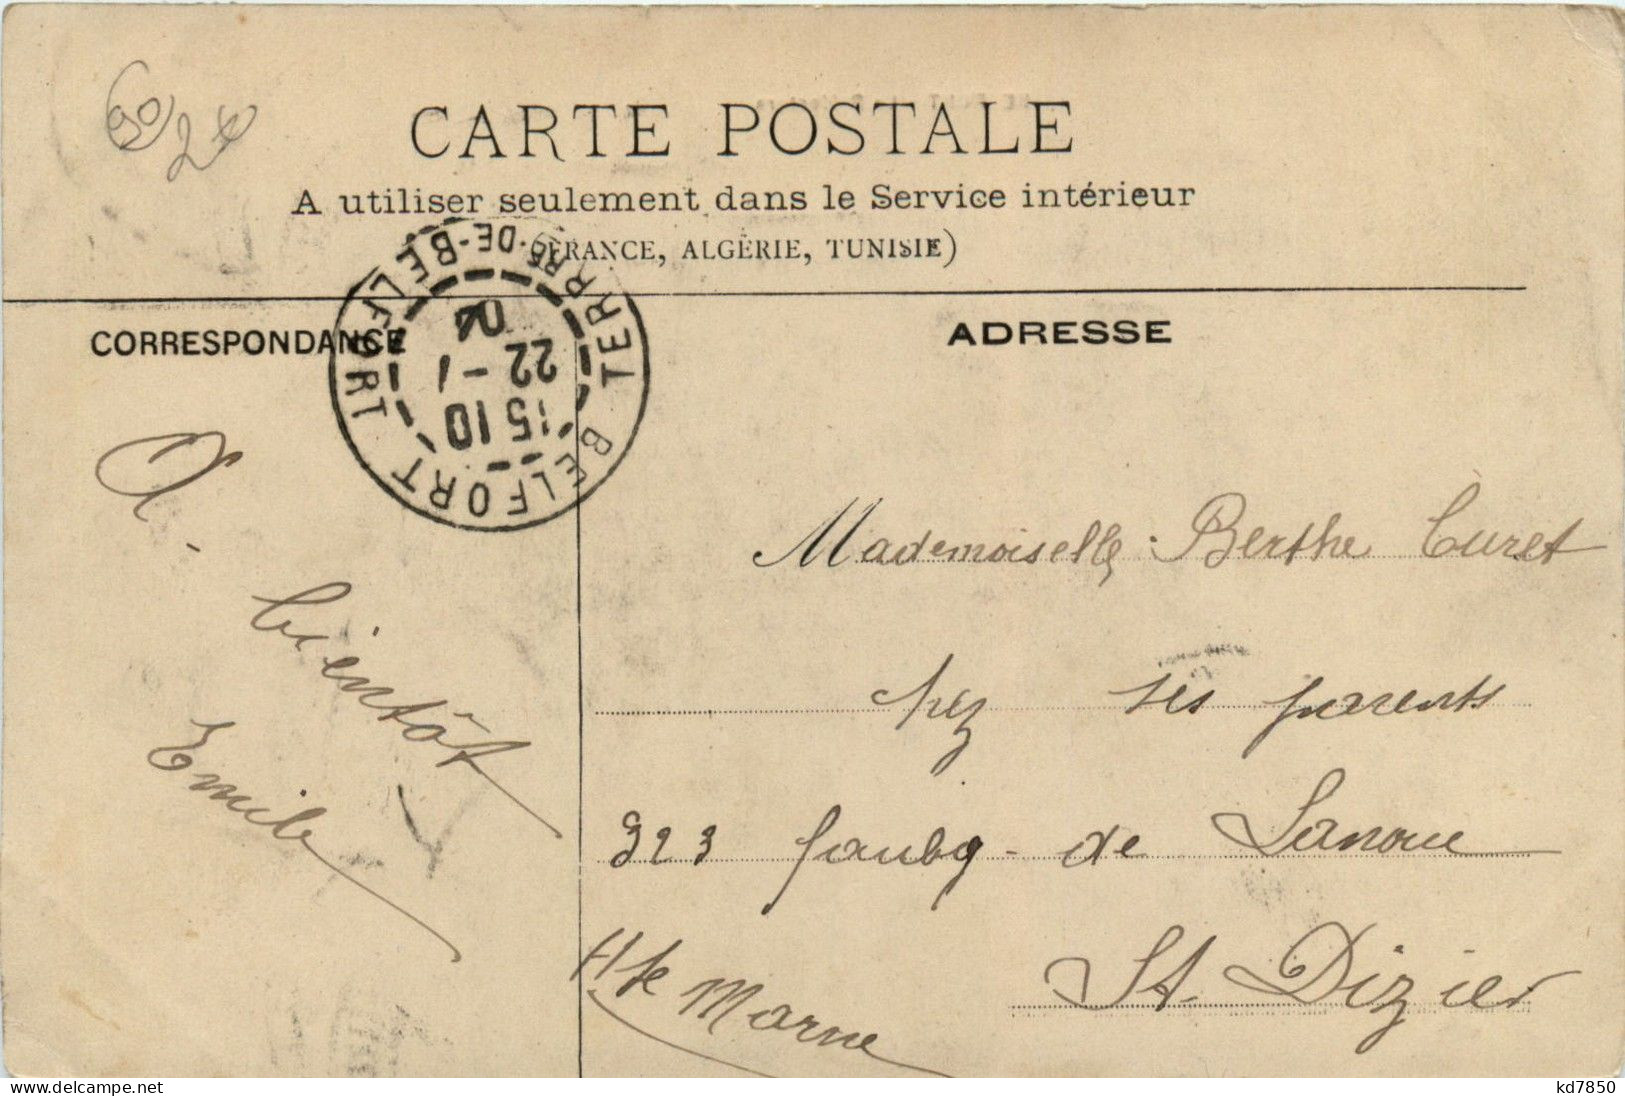 CARTE POSTALE
A utiliser seulement dans le Service intérieur
(FRANCE, ALGÉRIE, TUNISIE)
CORRESPONDANCE
ADRESSE
BELFORT
TERRRE-DE-BELFORT
15 10
22 - 1
A -
bientôt
Emile
Mademoiselle Berthe Curet
chez ses parents
323 faubg - de Lanoue
St. Dizier
Hte Marne
www.delcampe.net
kd7850